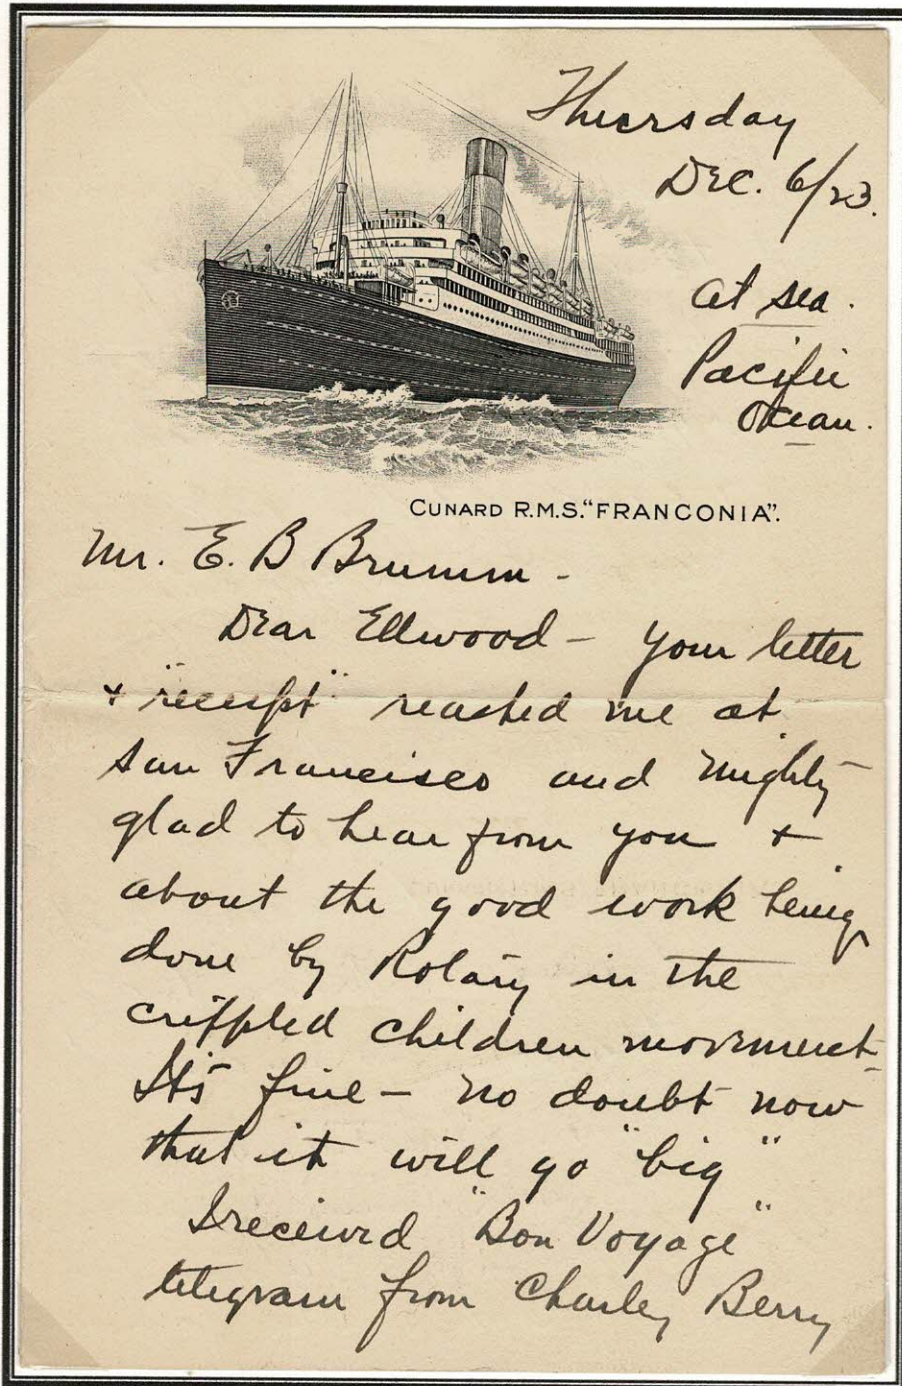 Thursday
Dec. 6/23.
at sea.
Pacific
Ocean.
CUNARD R.M.S. "FRANCONIA".
Mr. E. B Brumm -
Dear Ellwood - Your letter
+ "receipt" reached me at
San Francisco and mighty
glad to hear from you +
about the good work being
done by Rotary in the
crippled children movement-
It's fine - no doubt now
that it will go "big"
I received "Bon Voyage"
telegram from Charley Berry